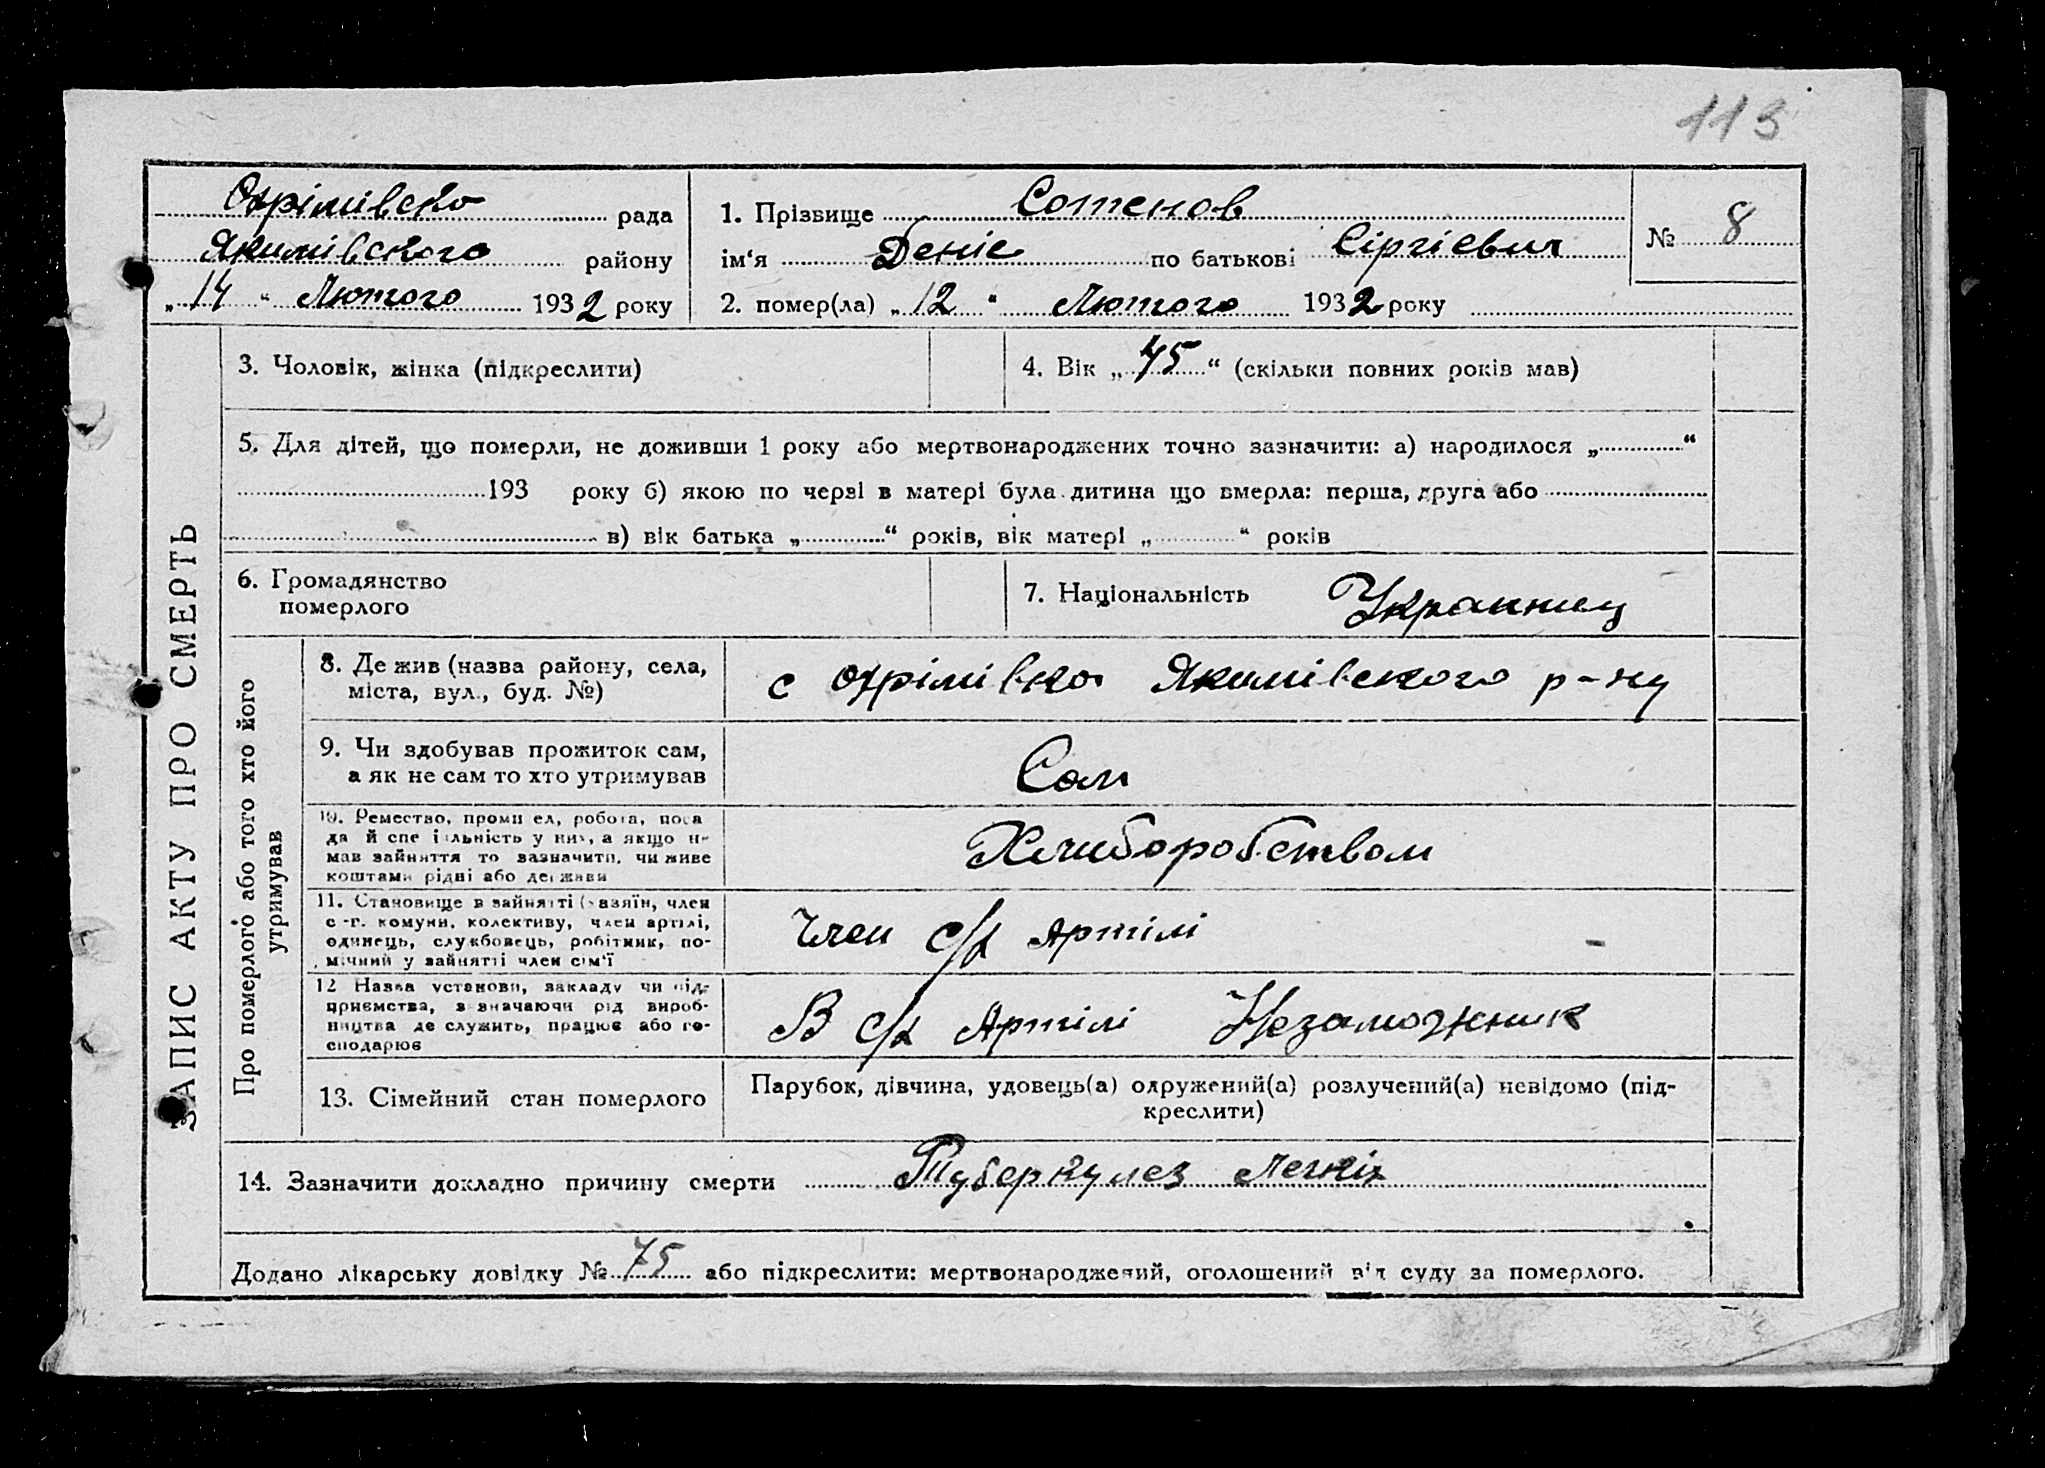 113
Охрімівсько рада
Якимівського району
„ 14 “ Лютого 1932 року
1. Прізвище Сотенов
ім‘я Деніс по батькові Сіргієвич
2. помер(ла) „ 12 “ Лютого 1932 року
№ 8
ЗАПИС АКТУ ПРО СМЕРТЬ
3. Чоловік, жінка (підкреслити)
4. Вік „ 45 “ (скільки повних років мав)
5. Для дітей, що померли, не доживши 1 року або мертвонароджених точно зазначити: а) народилося „ “
193 року б) якою по черзі в матері була дитина що вмерла: перша, друга або
в) вік батька „ “ років, вік матері „ “ років
6. Громадянство
померлого
7. Національність Украинец
Про померлого або того хто його
утримував
8. Де жив (назва району, села,
міста, вул., буд. №)
с Охрімівка Якимівского р-ну
9. Чи здобував прожиток сам,
а як не сам то хто утримував
Сам
10. Ремество, промисел, робота, поса
да й спеціяльність у них, а якщо не
мав зайняття то зазначити, чи живе
коштами рідні або держави
Хлиборобством
11. Становище в зайнятті (хазяїн, член
с.-г. комуни, колективу, член артілі,
одинець, службовець, робітник, по-
мічний у зайнятті член сім‘ї
Член с/х Артілі -
12 Назва установи, закладу чи під-
приємства, зазначаючи рід вироб-
ництва де служить, працює або го-
сподарює
В с/х Артілі Незаможник
13. Сімейний стан померлого
Парубок, дівчина, удовець(а) одружений(а) розлучений(а) невідомо (під-
креслити)
14. Зазначити докладно причину смерти Туберкулез Легкіх
Додано лікарську довідку № 75 або підкреслити: мертвонароджений, оголошений від суду за померлого.